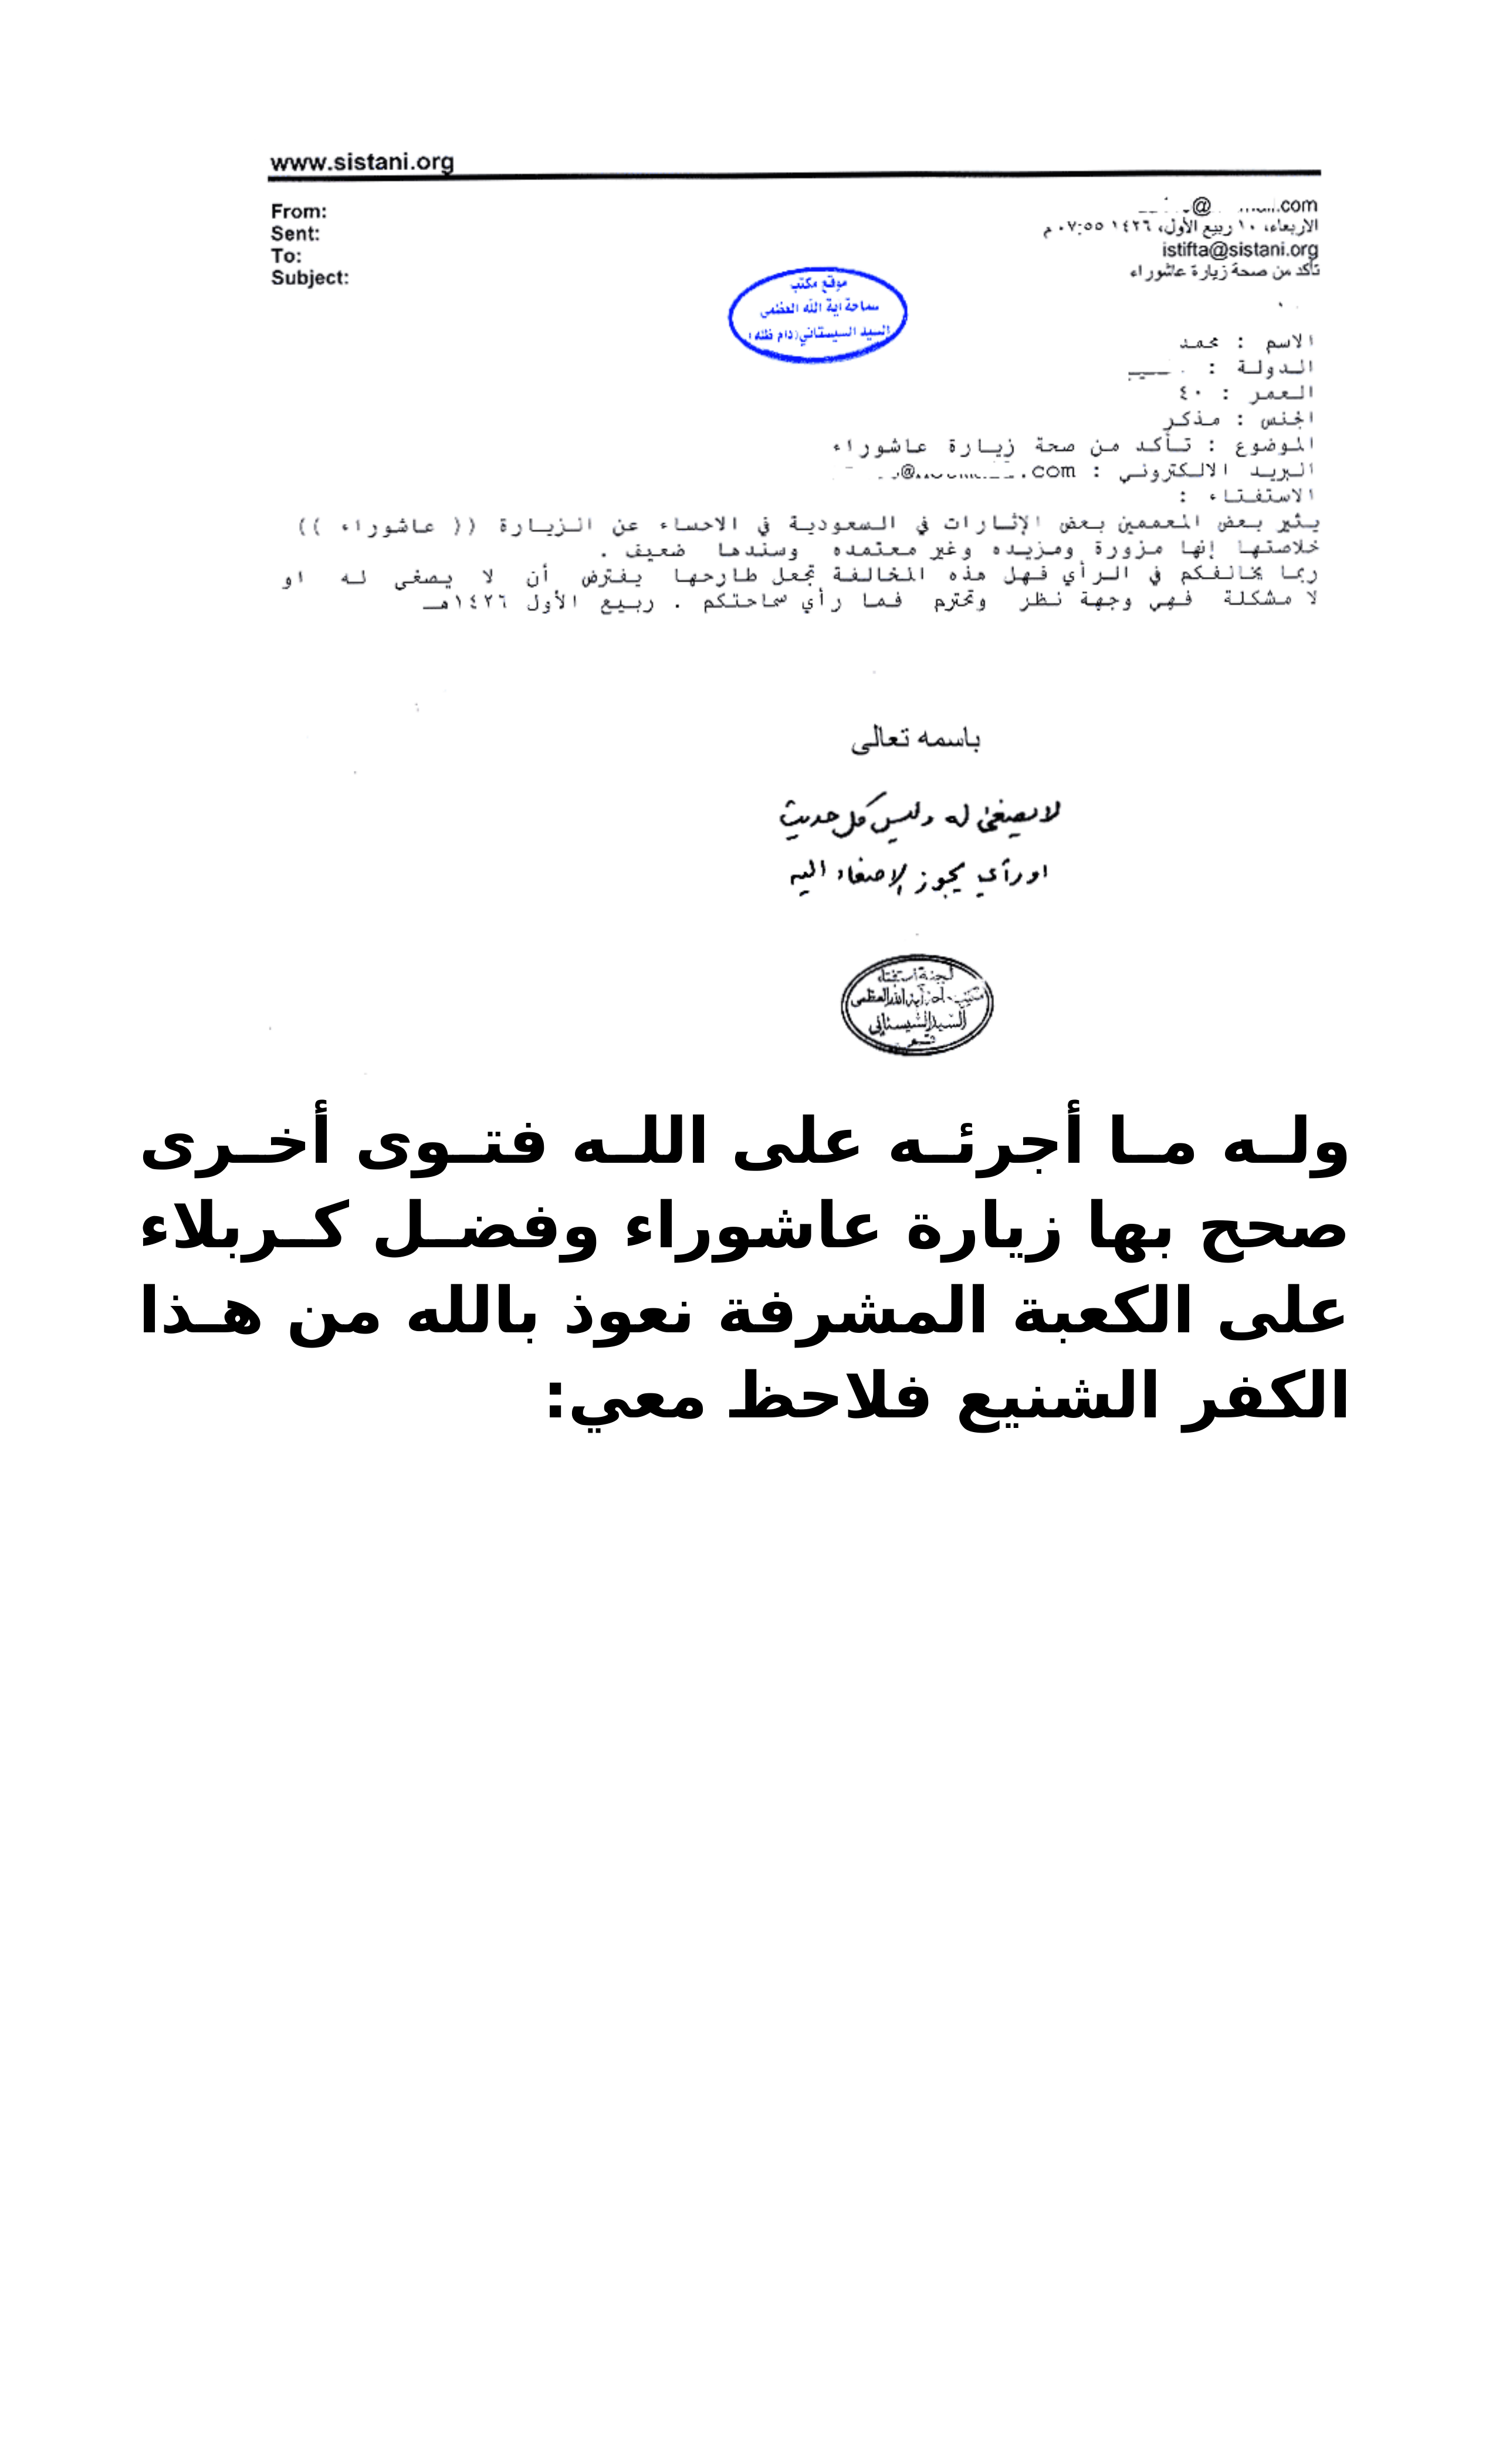 www.sistani.org
From: @ .com
Sent: الاربعاء، ١٠ ربيع الأول، ١٤٢٦ ٠٧:٥٥ م
To: istifta@sistani.org
Subject: تأكد من صحة زيارة عاشوراء
موقع مكتب
سماحة اية الله العظمى
السيد السيستاني (دام ظله)
الاسم : محمد
الدولة :
العمر : ٤٠
الجنس : مذكر
الموضوع : تأكد من صحة زيارة عاشوراء
البريد الالكتروني : @ .com
الاستفتاء :
يثير بعض المعممين بعض الإثارات في السعودية في الاحساء عن الزيارة (( عاشوراء ))
خلاصتها إنها مزورة ومزيده وغير معتمده وسندها ضعيف .
ربما يخالفكم في الرأي فهل هذه المخالفة تجعل طارحها يفترض أن لا يصغى له او
لا مشكلة فهي وجهة نظر وتحترم فما رأي سماحتكم . ربيع الأول ١٤٢٦هـ
باسمه تعالى
لا يصغى له وليس كل حديث
او رأي يجوز الإصغاء اليه
لجنة استفتاء
مكتب آية الله العظمى
السيد السيستاني
قم
وله ما أجرئه على الله فتوى أخرى
صحح بها زيارة عاشوراء وفضل كربلاء
على الكعبة المشرفة نعوذ بالله من هذا
الكفر الشنيع فلاحظ معي: